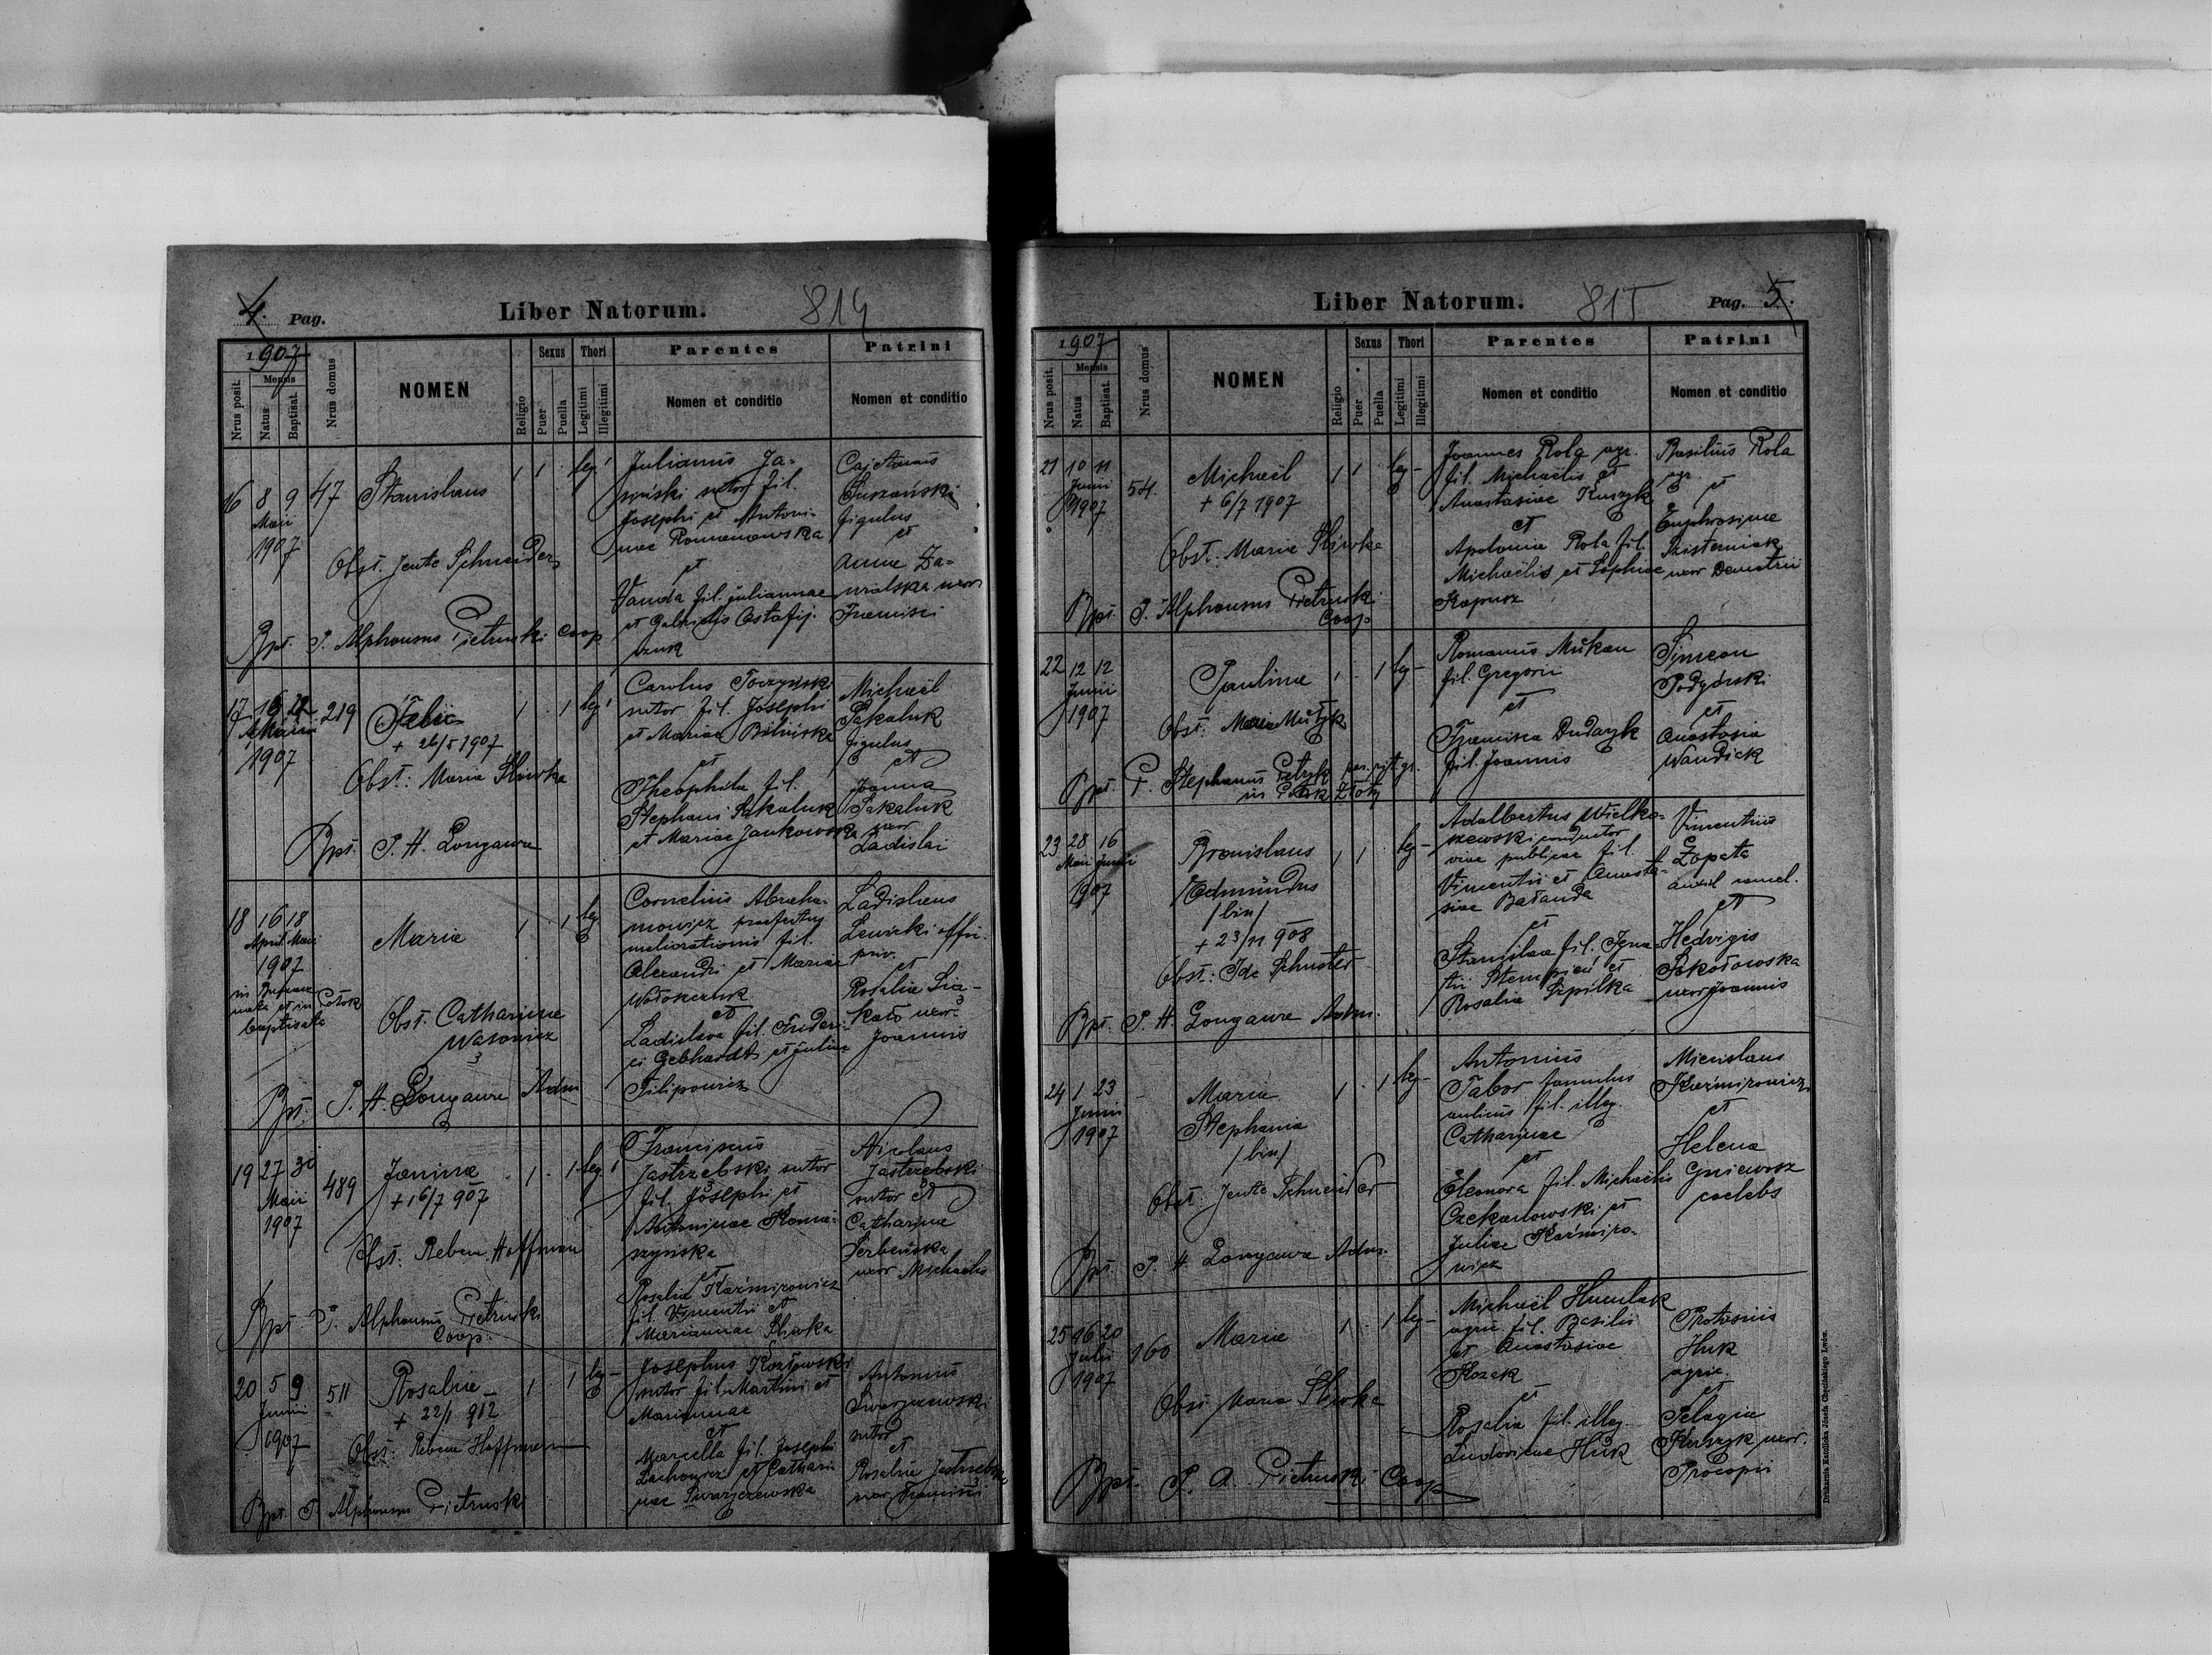 4. Pag.
Liber Natorum.
814
1907
Mensis
Nrus posit.
Natus
Baptisat.
Nrus domus
NOMEN
Religio
Sexus
Puer
Puella
Thori
Legitimi
Illegitimi
Parentes
Nomen et conditio
Patrini
Nomen et conditio
16 8 9 47 Stanislaus 1 1 leg
Maii
1907
Obst. Jente Schneider
Bpt. P. Alphonsus Pietruski Coop.
Julianus Ja-
siński sutor fil.
Josephi et Antoni-
nae Romanowska
et
Vanda fil. Juliannae
et Gabrielis Ostafij-
czuk
Cajetanus
Suszański
figulus
et
Anna Za-
uxor
Francisci
17 219 Felix 1 1 leg
+ 26/5 1907
1907
Obst: Maria Śliwka
Bpt. P. H. Longawa
Carolus Toczyński
sutor fil. Josephi
et Mariae Bilińska
et
Theophila fil.
Stephani Sakaluk
et Mariae Jankowska
Michaël
Sakaluk
figulus
et
Joanna
Sakaluk
uxor
Ladislai
18 16 18 Maria 1 1 leg
April Maii
1907
in
nata et in Potok
baptisata
Obst. Catharina
Wąsowicz
Bpt. P. H. Longawa Adm
Cornelius Abraha-
mowicz praefectus
meliorationis fil.
Alexandri et Mariae
Wołoszczuk
et
Ladislava fil. Frideri-
ci Gebhardt et Juliae
Filipowicz
Ladislaus
Lewicki offic.
priv.
et
Rosalia Sią-
kało uxor
Joannis
19 27 30 489 Janina 1 1 leg
Maii
1907
+ 16/7 907
Obst. Rebeca Hoffman
Bpt. P. Alphonsus Pietruski
Coop.
Franciscus
Jastrzębski sutor
fil. Josephi et
Antoninae Koma-
szyńska
et
Rosalia Kaźmirowicz
fil. Vincentii et
Mariannae Śliwka
Nicolaus
Jastrzębski
sutor et
Catharina
Serbeńska
uxor Michaëlis
20 5 9 511 Rosalia 1 1 leg
Junii
1907
+ 22/1 912
Obst: Rebeca Hoffman
Bpt. P. Alphonsus Pietruski
Josephus Kozłowski
sutor fil. Martini et
Mariannae
et
Marcella fil. Josephi
Lachowicz et Cathari-
nae Swaryczewska
Antonius
Swaryczewski
sutor
et
Rosalia Jastrzębska
uxor Francisci
Liber Natorum.
815
Pag. 5.
1907
Mensis
Nrus posit.
Natus
Baptisat.
Nrus domus
NOMEN
Religio
Sexus
Puer
Puella
Thori
Legitimi
Illegitimi
Parentes
Nomen et conditio
Patrini
Nomen et conditio
21 10 11 54. Michaël 1 1 leg
Junii
1907
+ 6/7 1907
Obst: Maria Śliwka
Bpt. P. Alphonsus Pietruski
Coop
Joannes Rola agr.
fil. Michaëlis et
Anastasiae Kuszyk
et
Apolonia Rola fil.
Michaëlis et Sophiae
Kapusz
Basilius Rola
agr.
et
Euphrosina
uxor Demetrii
22 12 12 Paulina 1 1 leg
Junii
1907
Obst. Maria
Bpt. P. Stephanus Petryk par. rit. gr.
in Potok Złoty
Romanus Mukan
fil. Gregorii
et
Francisca Dudaryk
fil. Joannis
Simeon
Podgórski
et
Anastasia
Wandick
23 28 16 Bronislaus 1 1 leg
Maii Junii
1907
Edmundus
/bin/
+ 23/11 908
Obst: Ida Schuster
Bpt. P. H. Longawa Adm.
Adalbertus Wielko-
szewski conductor
viae publicae fil.
Vincentii et Anasta-
siae Batanda
et
Stanislava fil. Igna-
tii Stempień et
Rosalia Szpilka
Vincentius
Łopata
auxil. cancel.
et
Hedvigis
Sokołowska
uxor Joannis
24 1 23 Maria 1 1 leg
Junii
1907
Stephania
/bin/
Obst. Jente Schneider
Bpt. P. H. Longawa Adm.
Antonius
Tabor famulus
aulicus fil. illeg.
Catharinae
et
Eleonora fil. Michaëlis
Czekanowski et
Juliae Kaźmiro-
wicz
Miecislaus
Kaźmirowicz
et
Helena
Gniewosz
coelebs
25 16 20 160 Maria 1 1 leg
Julii
1907
Obst Maria Śliwka
Bpt. P. A. Pietruski Coop
Michaël Huculak
agric. fil. Basilii
et Anastasiae
Kozak
et
Rosalia fil. illeg.
Ludovicae Huk
Protasius
Huk
agric.
et
Pelagia
Kuszyk uxor.
Procopii
Drukarnia Katolicka Józefa Chęcińskiego Lwów.